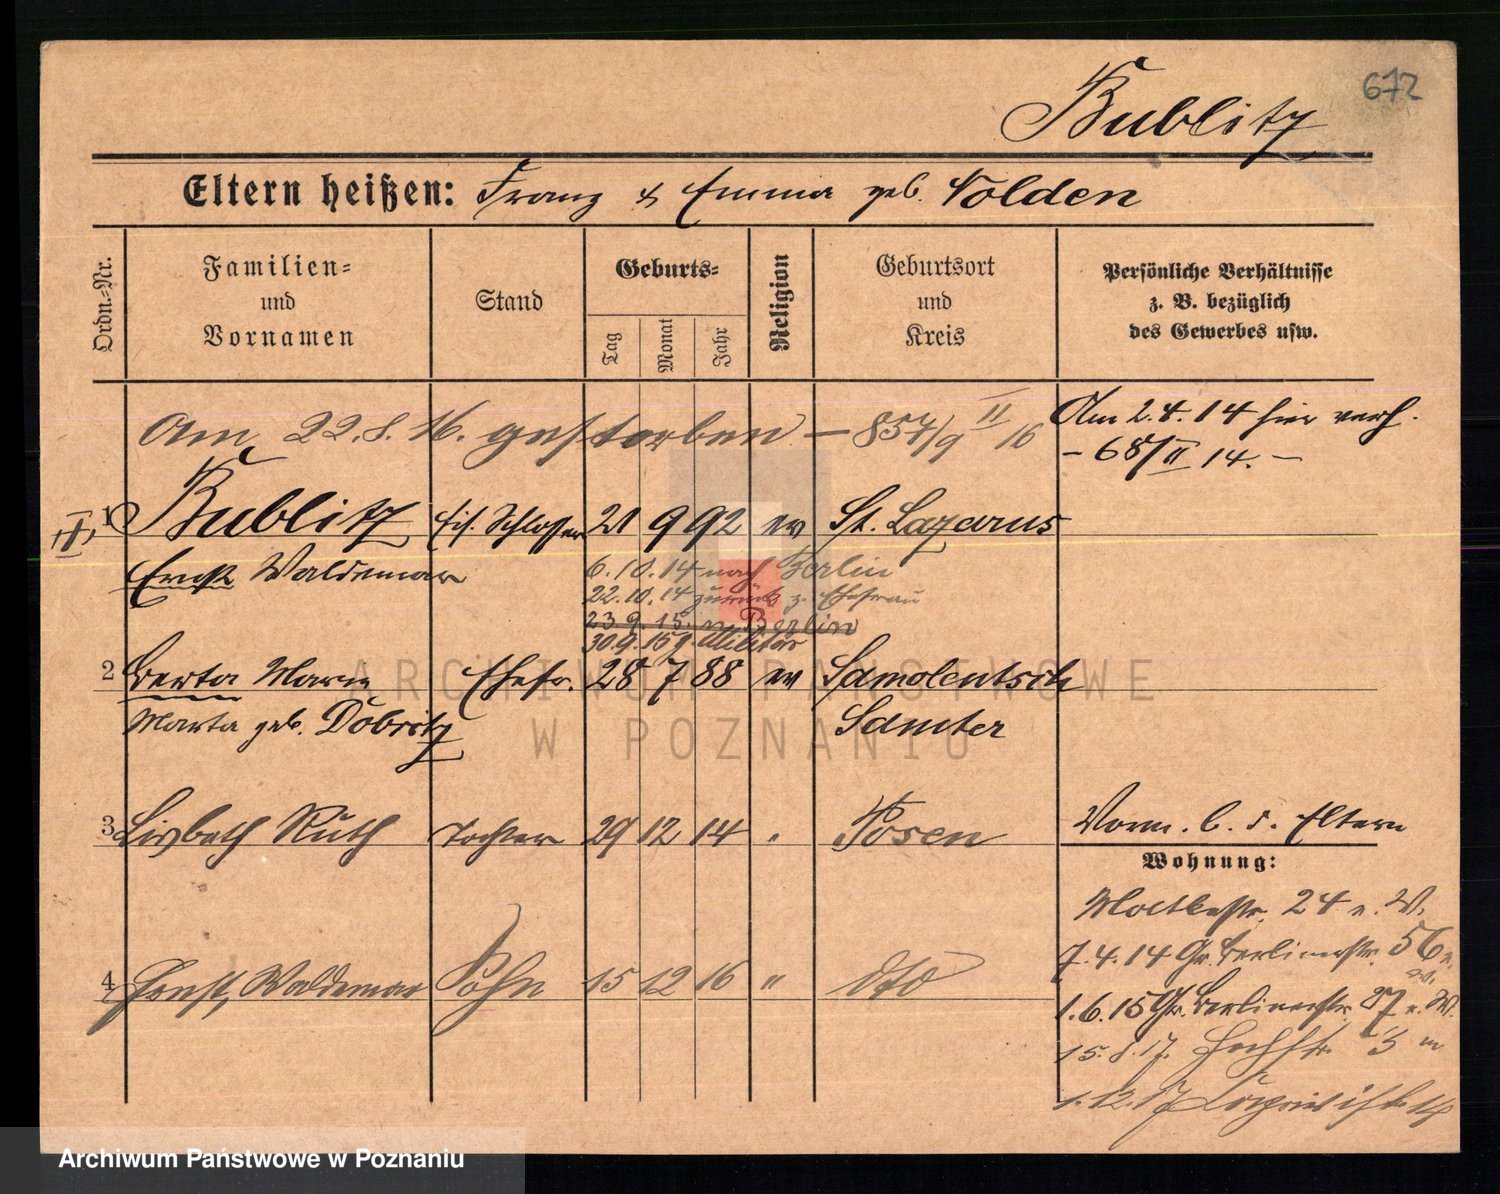 672
Bublitz
Eltern heißen: Franz & Emma geb. Nolden
Ordn.-Nr.
Familien- und Vornamen
Stand
Geburts-
Tag
Monat
Jahr
Religion
Geburtsort und Kreis
Persönliche Verhältnisse z. B. bezüglich des Gewerbes usw.
Am 22.8.16. gestorben – 854/9 II 16
Am 2.4.14 hier verh.
– 68/II 14. –
1 Bublitz Eis. Schlosser 21 9 92 ev St. Lazarus
Ernst Waldemar
6.10.14 nach Berlin
22.10.14 zurück z. Ehefrau
23.9.15. n. Berlin
30.9.15 z. Militär
2 Berta Maria Ehefr. 28 7 88 ev Samolentsch
Marta geb. Döbritz Samter
3 Lisbeth Ruth Tochter 29 12 14 " Posen
Vorm. b. d. Eltern
Wohnung:
Moltkestr. 24 n. W.
7.4.14 Gr. Berlinerstr. 56
1.6.15 Gr. Berlinerstr. 87 n. W.
15.8.17. Hochstr. 3
1.12.17
4 Ernst, Waldemar Sohn 15 12 16 " dto
ARCHIWUM PAŃSTWOWE
W POZNANIU
Archiwum Państwowe w Poznaniu